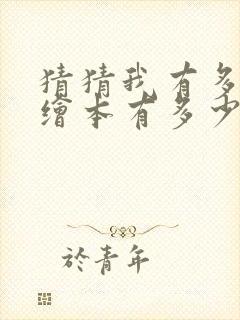 猜猜我有多
繪本有多少
於青年